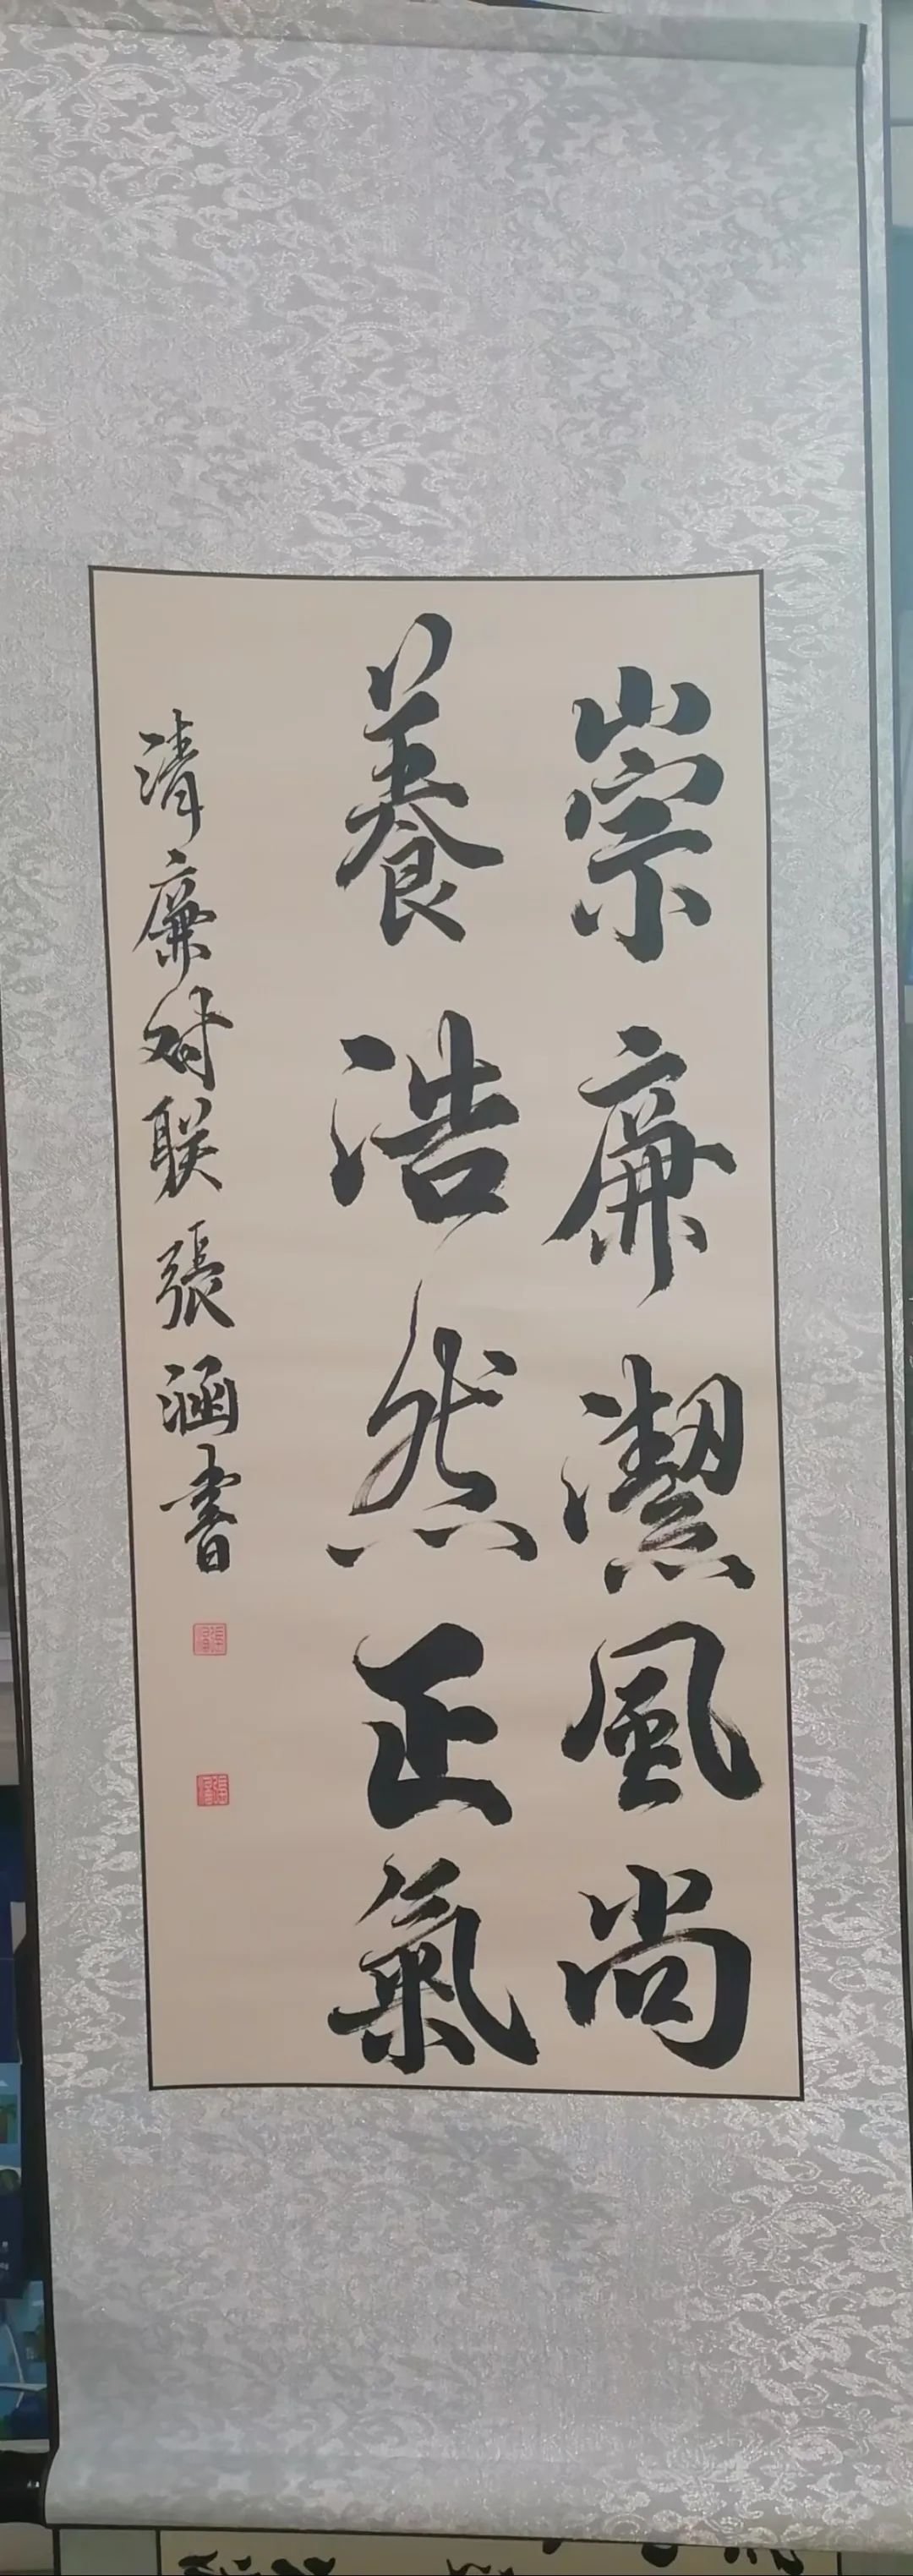 崇廉潔風尚
養浩然正氣
清廉对联張涵書